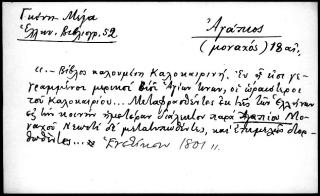 Γκίνη Μέξα
Ἑλλην. Βιβλιογρ. 52
Ἀγάπιος
(μοναχός) 18 αἰ.
"... Βίβλος καλουμένη Καλοκαιρινή. Ἐν ᾗ εἰσι γε-
γραμμένοι μερικοί Βίοι Ἁγίων τινων, οἱ ὡραιότεροι
τοῦ Καλοκαιρίου... Μεταφρασθέντες ἐκ τῆς τῶν Ἑλλήνων
εἰς τὴν κοινὴν ἡμετέραν διάλεκτον παρὰ Ἀγαπίου Μο-
ναχοῦ Νεωστί δὲ μετατυπωθέντες, καὶ ἐπιμελῶς διορ-
θωθέντες... Ἐνετίησιν 1801".